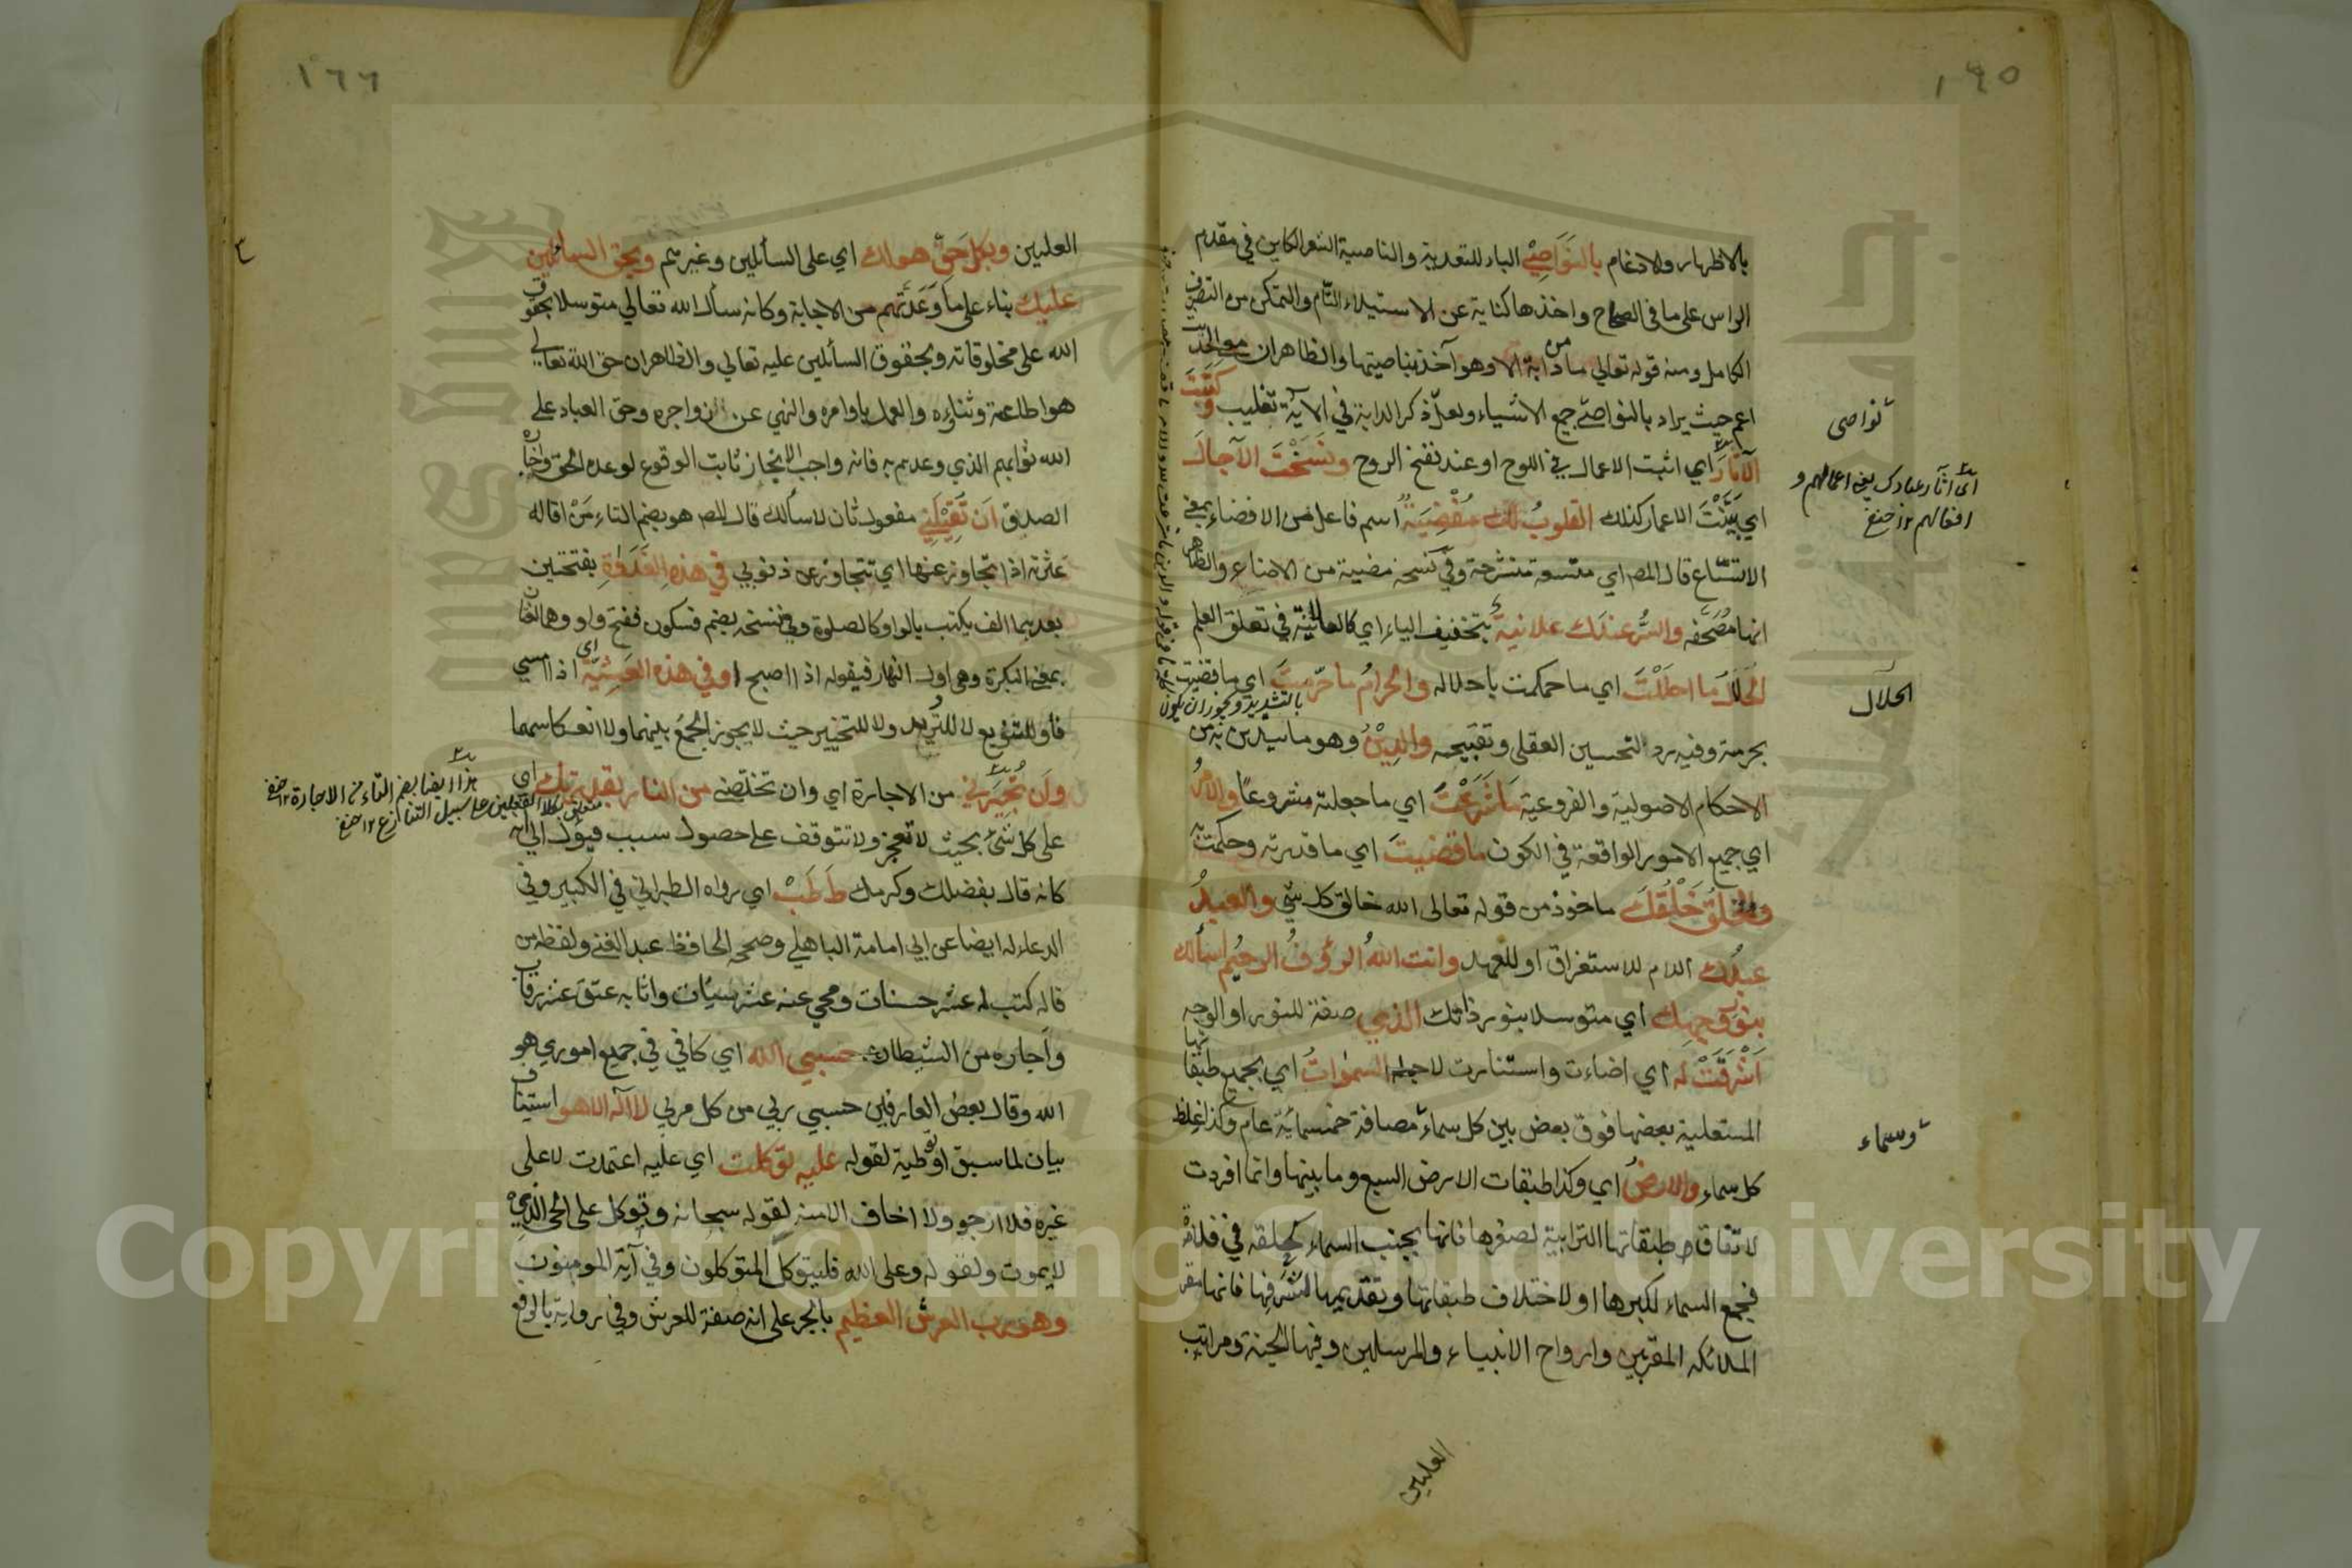 ١٦٥
بالاظهار والادغام بالنَّوَاصِيْ الباء للتعدية والناصية الشعر الكاين في مقدم
الراس على ما في الصحاح واخذها كناية عن الاستيلاء التام والتمكن من التصرف
الكامل ومنه قوله تعالى ما من دابة الا وهو آخذ بناصيتها والظاهر ان
اعم حيث يراد بالنواصي جميع الاشياء ولعلّ ذكر الدابة في الآية تغليب وكَتَبْتَ
الآثَارَ اي اثبت الاعمال في اللوح او عند نفخ الروح ونَسَخْتَ الآجالَ
اي بَيَّنْتَ الاعمار كذلك القلوبُ لك مُفْضِيَةٌ اسم فاعل من الافضاء بمعنى
الاتساع قال المص اي متسعة منشرحة وفي نسخة مضية من الاضاء والظاهر
انها مصحفه والسُّر عندك علانيةٌ بتخفيف الياء اي كالعلانية في تعلق العلم
الحلال ما احللْتَ اي ما حكمت باحلاله والحرامُ ما حرّمتَ اي ما قضيت
بحرمته وفيه رد التحسين العقلي وتقبيحه والدِيْنُ وهو ما يتدين به من
الاحكام الاصولية والفروعية ما شَرَعْتَ اي ما جعلته مشروعًا والامرُ
اي جميع الامور الواقعة في الكون ما قضيتَ اي ما قدرته وحكمت به
والخلقُ خَلْقُكَ ماخوذ من قوله تعالى الله خالق كل شئ والعبدُ
عبدُك اللام للاستغراق او للعهد وانت اللهُ الرؤفُ الرحيمُ اسألك
بنور وجهك اي متوسلا بنور ذاتك الذي صفة للنور او الوجه
اَشْرَقَتْ له اي اضاءت واستنارت لاجله السمٰواتُ اي بجميع طبقاتها
المستعلية بعضها فوق بعض بين كل سماء مصافة خمسمائة عام وكذا غلظ
كل سماء والارضُ اي وكذا طبقات الارض السبع وما بينها وانما افردت
لاتفاق طبقاتها الترابية لصغرها فانها بجنب السماء كحلقه في فلاة
فجمع السماء لكبرها او لاختلاف طبقاتها وتقديمها لشرفها فانها مقر
الملائكه المقربين وارواح الانبياء والمرسلين وفيها الجنة ومراتب
العليين
نواصى
اى آثار عبادك يعنى اعمالهم و
افعالهم ١٢ حنفى
الحلال
وسماء
بالتشديد ويجوز ان يكون
١٦٦
العليين وبكل حقّ هو لك اي على السائلين وغيرهم وبحق السائلين
عليك بناء على ما وَعَدتَهم من الاجابة وكانه سأل الله تعالي متوسلا بحقوق
الله على مخلوقاته وبحقوق السائلين عليه تعالي والظاهر ان حق الله تعالى
هو اطاعته وثناؤه والعمل باوامره والنهي عن زواجره وحق العباد على
الله ثوابهم الذي وعدهم به فانه واجب الانجاز ثابت الوقوع لوعده الحق واخباره
الصدق اَن تُقِيْلَنِيْ مفعول ثان لاسألك قال المص هو بضم التاء مَنْ اقاله
عثرته اذا تجاوز عنها اي تتجاوز عن ذنوبي في هذه الغَدَوٰةِ بفتحتين
بعدهما الف يكتب بالواو كالصلوة وفي نسخة بضم فسكون ففتح واو وهما لغتان
بمعنى البكرة وهى اول النهار فيقوله اذا اصبح او في هذه العَشِيَّةِ اي اذا امسى
فاو للتنويع لا للترديد ولا للتخيير حيث لا يجوز الجمعُ بينهما ولا انعكاسهما
واَن تُجِيْرَنِي من الاجارة اي وان تخلّصني من النار بقدرتك اي
على كل شئ بحيث لا تعجز ولا تتوقف على حصول سبب فيؤل الى انه
كانه قال بفضلك وكرمك طَ طَبْ اي رواه الطبراني في الكبير وفي
الدعاء له ايضا عن ابي امامة الباهلي وصححه الحافظ عبد الغني ولفظه من
قاله كتب له عشر حسنات ومحي عنه عشر سيئات واثابه عتق عشر رقاب
واَجاره من الشيطان حسبي الله اي كافي في جميع اموري هو
الله وقال بعض العارفين حسبي ربي من كل مربي لا آله الا هو استيناف
بيان لما سبق او توطية لقوله عليه توكلت اي عليه اعتمدت لا على
غيره فلا ارجو ولا اخاف الا منه لقوله سبحانه وتوكل على الحي الذي
لا يموت ولقوله وعلى الله فليتوكل المتوكلون وفي آية المومنون
وهو رب العرش العظيم بالجر على انه صفة للعرش وفي رواية بالرفع
هذا ايضا بضم التاء من الاجارة ١٢ حنفى
متعلق بكلا الفعلين على سبيل التنازع ١٢ حنفى
Copyright © King Saud University